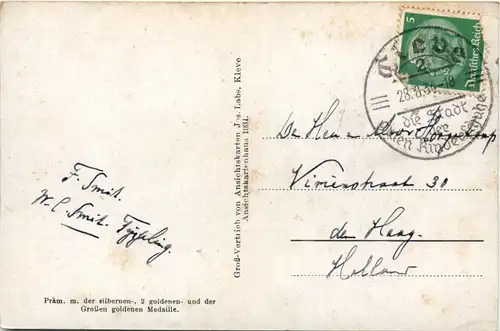 5
Deutsches Reich
Cleve
2
28.8.34
die Stadt
F. Smit.
W. C. Smit.
Präm. m. der silbernen-, 2 goldenen- und der
Großen goldenen Medaille.
Groß-Vertrieb von Ansichtskarten Jos. Labs, Kleve
Ansichtskartenhaus 1934.
De Heer
30
den Haag.
Holland